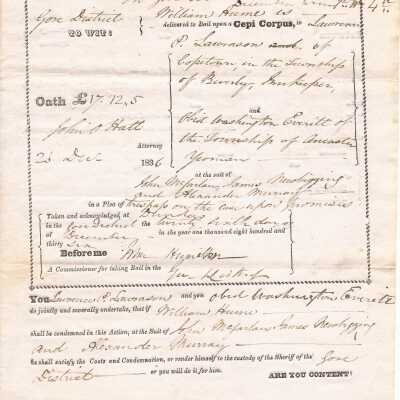 Gore District William Hume is
TO WIT: delivered to Bail upon a Cepi Corpus, to Lawrence
P. Lawrason and of
Copetown, in the Township
of Beverly, Innkeeper,
Oath £17,12,5
and
John O Hatt Obid Washington Everitt of
Attorney the Township of Ancaster
23 Dec 1836 Yeoman
at the suit of
John McFarlan, James Newbigging
and Alexander Murray
in a Plea of trespass on the case upon promises
Taken and acknowledged, at Dundas
in the Gore District the twenty
of December in the year one thousand eight hundred and
thirty Six
Before me Wm
A Commissioner for taking Bail in the
Gore District
You Lawrence P. Lawrason and you Obid Washington Everitt
do jointly and severally undertake, that if William Hume
shall be condemned in this Action, at the Suit of John McFarlan James Newbigging
and Alexander Murray
he shall satisfy the Costs and Condemnation, or render himself to the custody of the Sheriff of the Gore
District or you will do it for him. ARE YOU CONTENT?